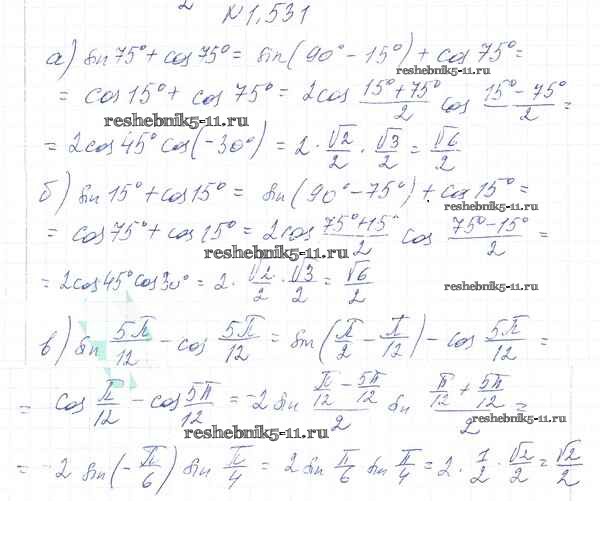 N 1,531
а) sin 75° + cos 75° = sin(90° - 15°) + cos 75° =
reshebnik5-11.ru
= cos 15° + cos 75° = 2cos (15° + 75°)/2 cos (15° - 75°)/2 =
reshebnik5-11.ru
= 2cos 45° cos(-30°) = 2 · √2/2 · √3/2 = √6/2
б) sin 15° + cos 15° = sin(90° - 75°) + cos 15° =
reshebnik5-11.ru
= cos 75° + cos 15° = 2cos (75° + 15°)/2 cos (75° - 15°)/2 =
reshebnik5-11.ru
= 2cos 45° cos 30° = 2 · √2/2 · √3/2 = √6/2
reshebnik5-11.ru
в) sin 5π/12 - cos 5π/12 = sin(π/2 - π/12) - cos 5π/12 =
= cos π/12 - cos 5π/12 = -2 sin (π/12 - 5π/12)/2 sin (π/12 + 5π/12)/2 =
reshebnik5-11.ru
= -2 sin(-π/6) sin π/4 = 2 sin π/6 sin π/4 = 2 · 1/2 · √2/2 = √2/2